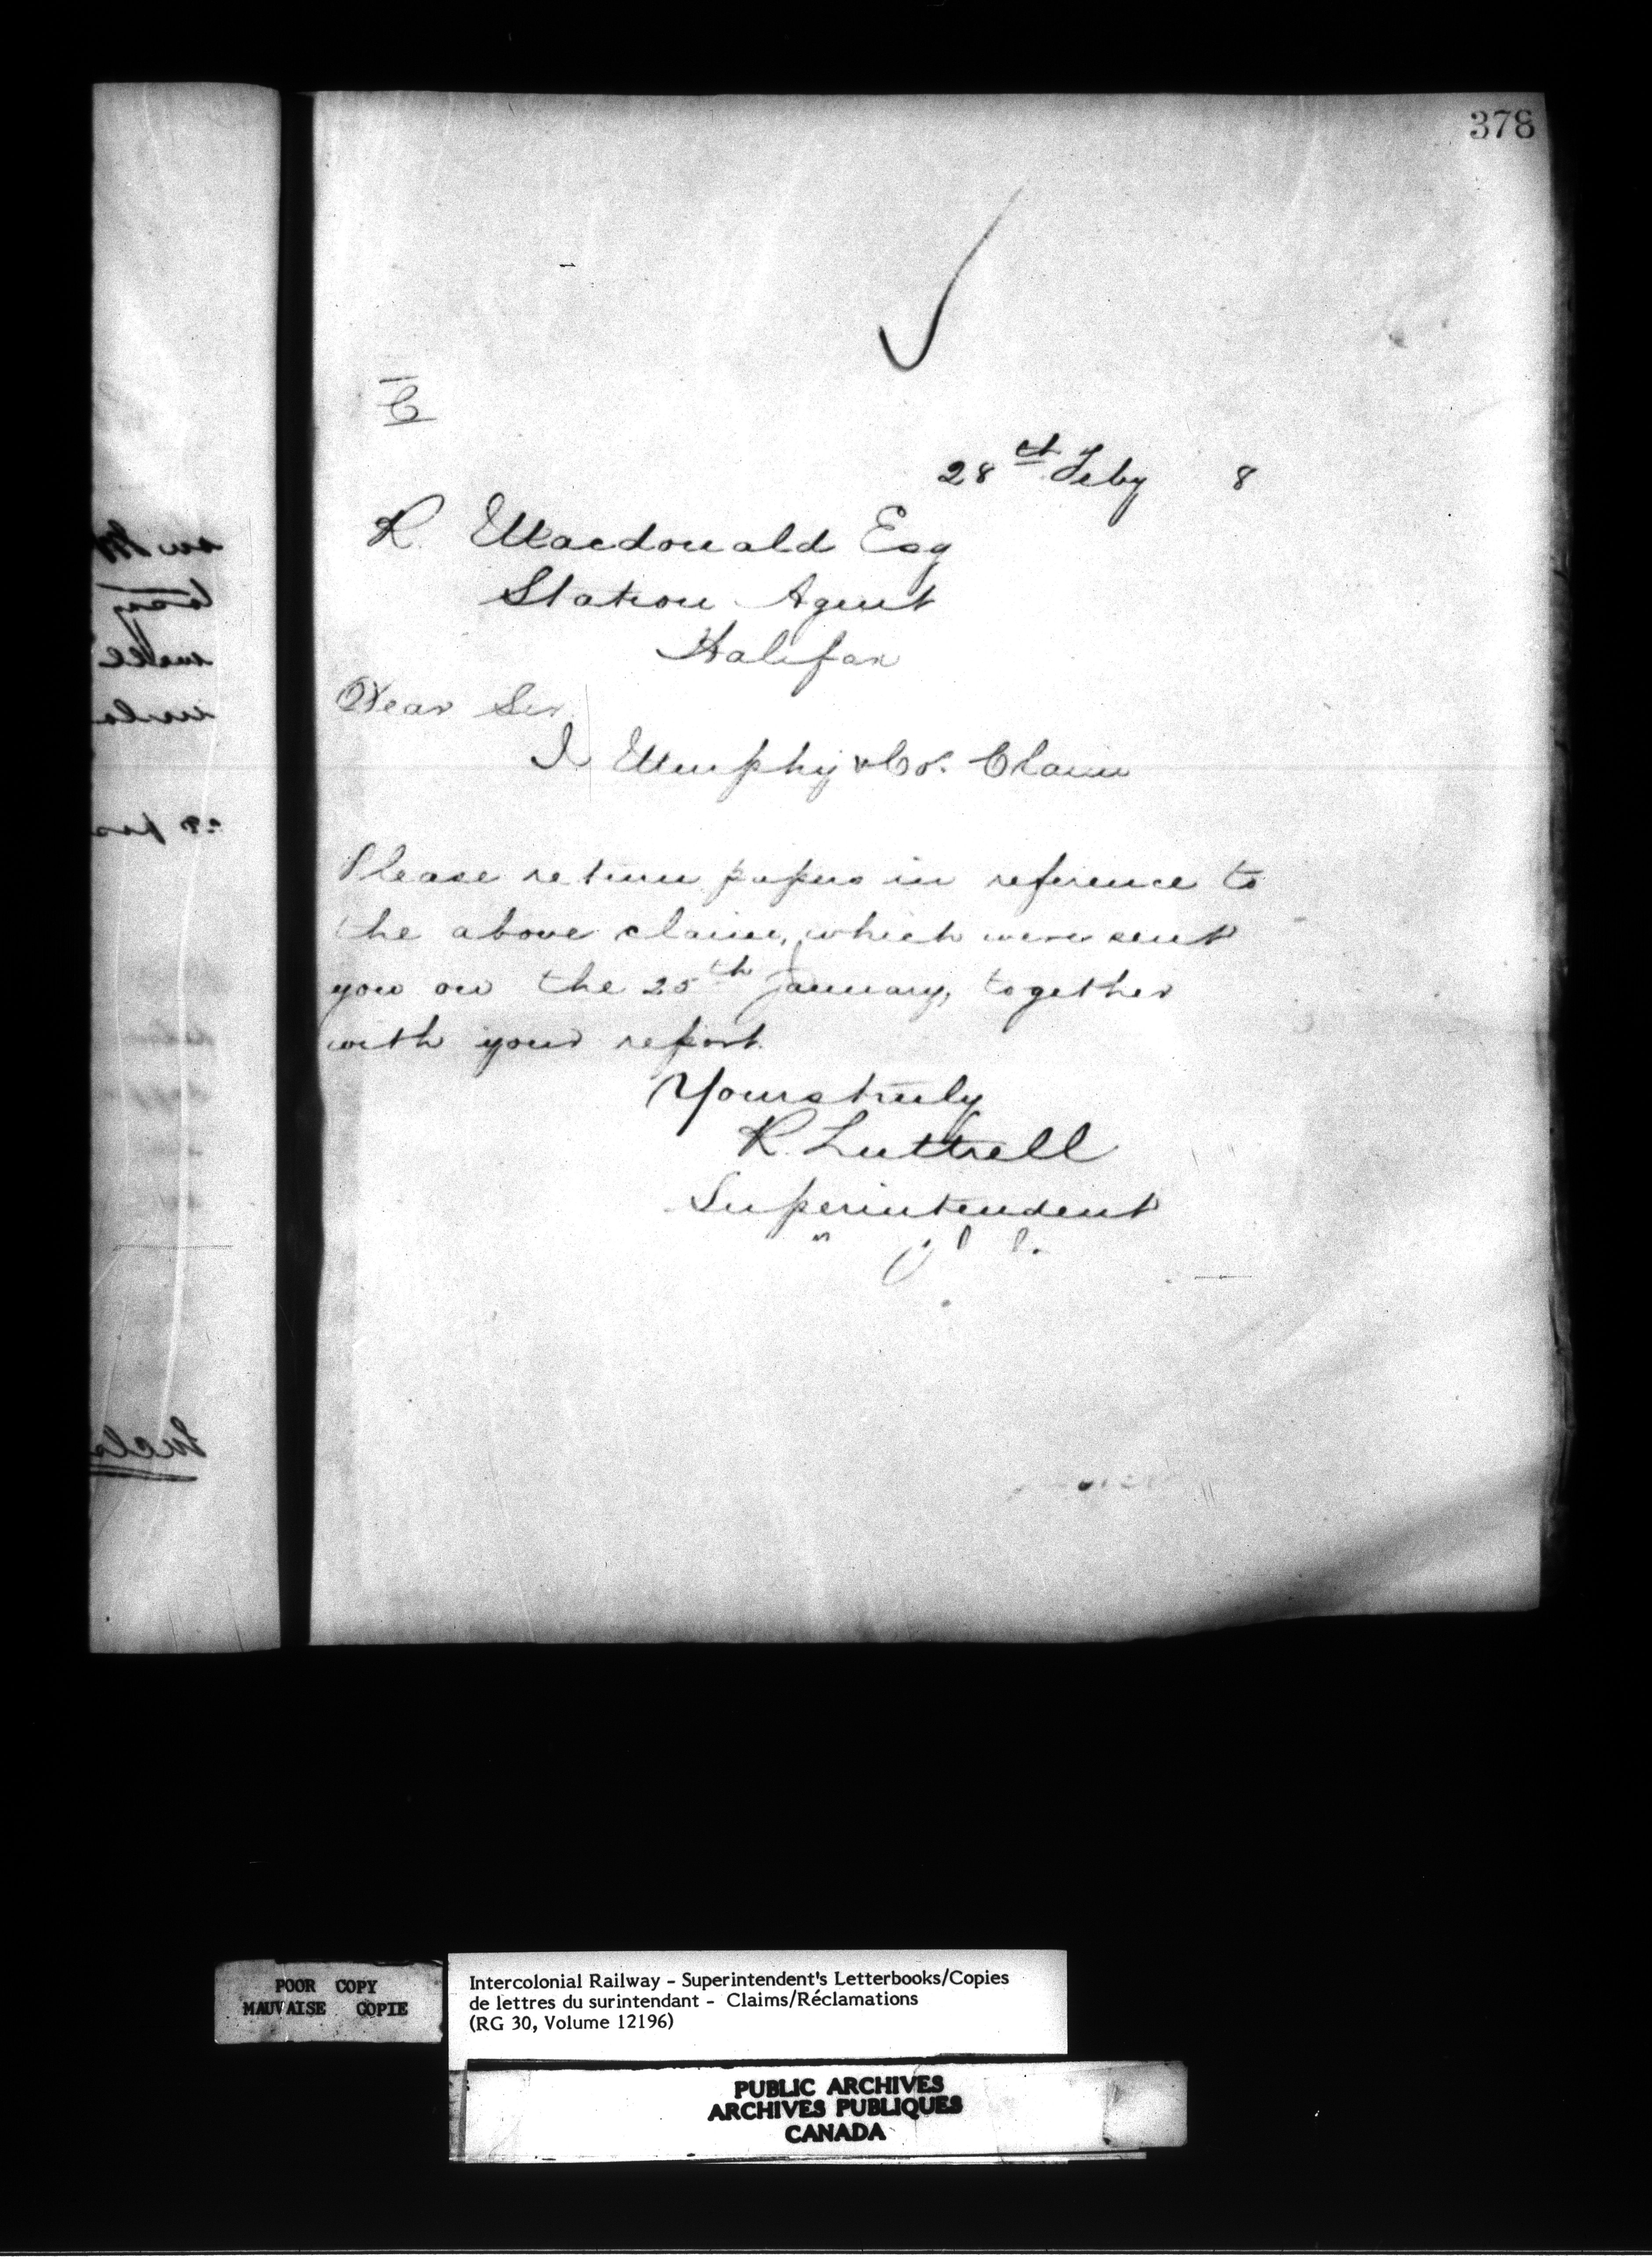 378
C
28th Feby 8
R. Macdonald Esq
Station Agent
Halifax
Dear Sir
J Murphy & Co. Claim
Please return papers in reference to
the above claim, which were sent
you on the 25th January, together
with your report.
Yours truly
R. Luttrell
Superintendent
POOR COPY
MAUVAISE COPIE
Intercolonial Railway - Superintendent's Letterbooks/Copies
de lettres du surintendant - Claims/Réclamations
(RG 30, Volume 12196)
PUBLIC ARCHIVES
ARCHIVES PUBLIQUES
CANADA